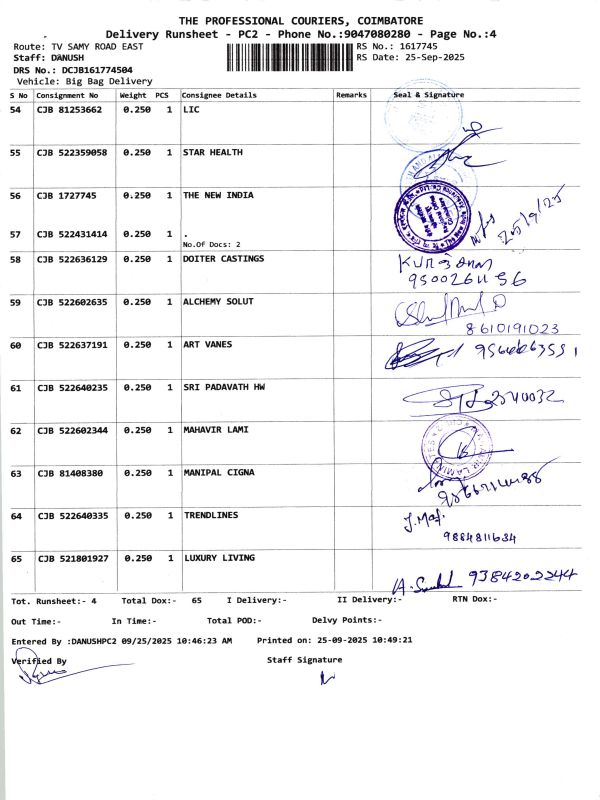 THE PROFESSIONAL COURIERS, COIMBATORE
Delivery Runsheet - PC2 - Phone No.:9047080280 - Page No.:4
Route: TV SAMY ROAD EAST RS No.: 1617745
Staff: DANUSH RS Date: 25-Sep-2025
DRS No.: DCJB161774504
Vehicle: Big Bag Delivery
S No Consignment No Weight PCS Consignee Details Remarks Seal & Signature
54 CJB 81253662 0.250 1 LIC
55 CJB 522359058 0.250 1 STAR HEALTH
56 CJB 1727745 0.250 1 THE NEW INDIA
25/9/25
57 CJB 522431414 0.250 1 .
No.Of Docs: 2
58 CJB 522636129 0.250 1 DOITER CASTINGS
59 CJB 522602635 0.250 1 ALCHEMY SOLUT
8610191023
60 CJB 522637191 0.250 1 ART VANES
61 CJB 522640235 0.250 1 SRI PADAVATH HW
62 CJB 522602344 0.250 1 MAHAVIR LAMI
63 CJB 81408380 0.250 1 MANIPAL CIGNA
64 CJB 522640335 0.250 1 TRENDLINES
9884811634
65 CJB 521801927 0.250 1 LUXURY LIVING
9384202244
Tot. Runsheet:- 4 Total Dox:- 65 I Delivery:- II Delivery:- RTN Dox:-
Out Time:- In Time:- Total POD:- Delvy Points:-
Entered By :DANUSHPC2 09/25/2025 10:46:23 AM Printed on: 25-09-2025 10:49:21
Verified By Staff Signature